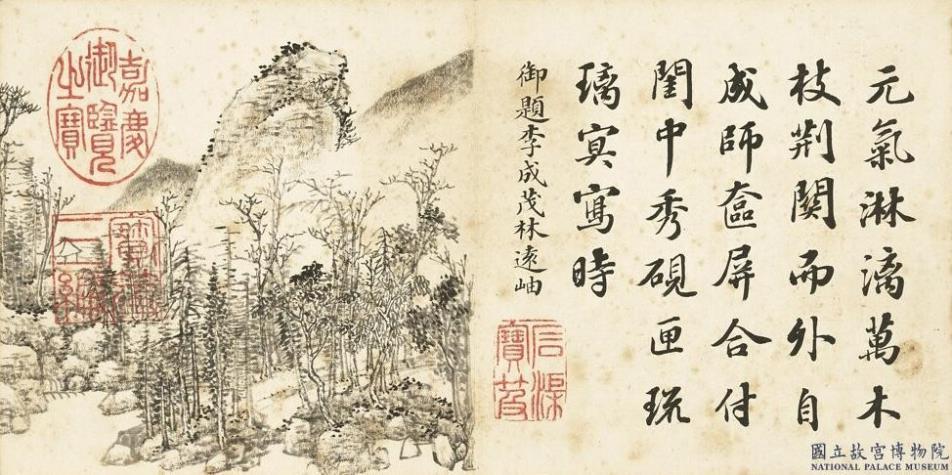 元氣淋漓萬木
枝荆関而外自
成師奩屏合付
閨中秀硯匣琉
璃㝠寫時
御題李成茂林遠岫
嘉慶
御覽
之寶
國立故宮博物院
NATIONAL PALACE MUSEUM